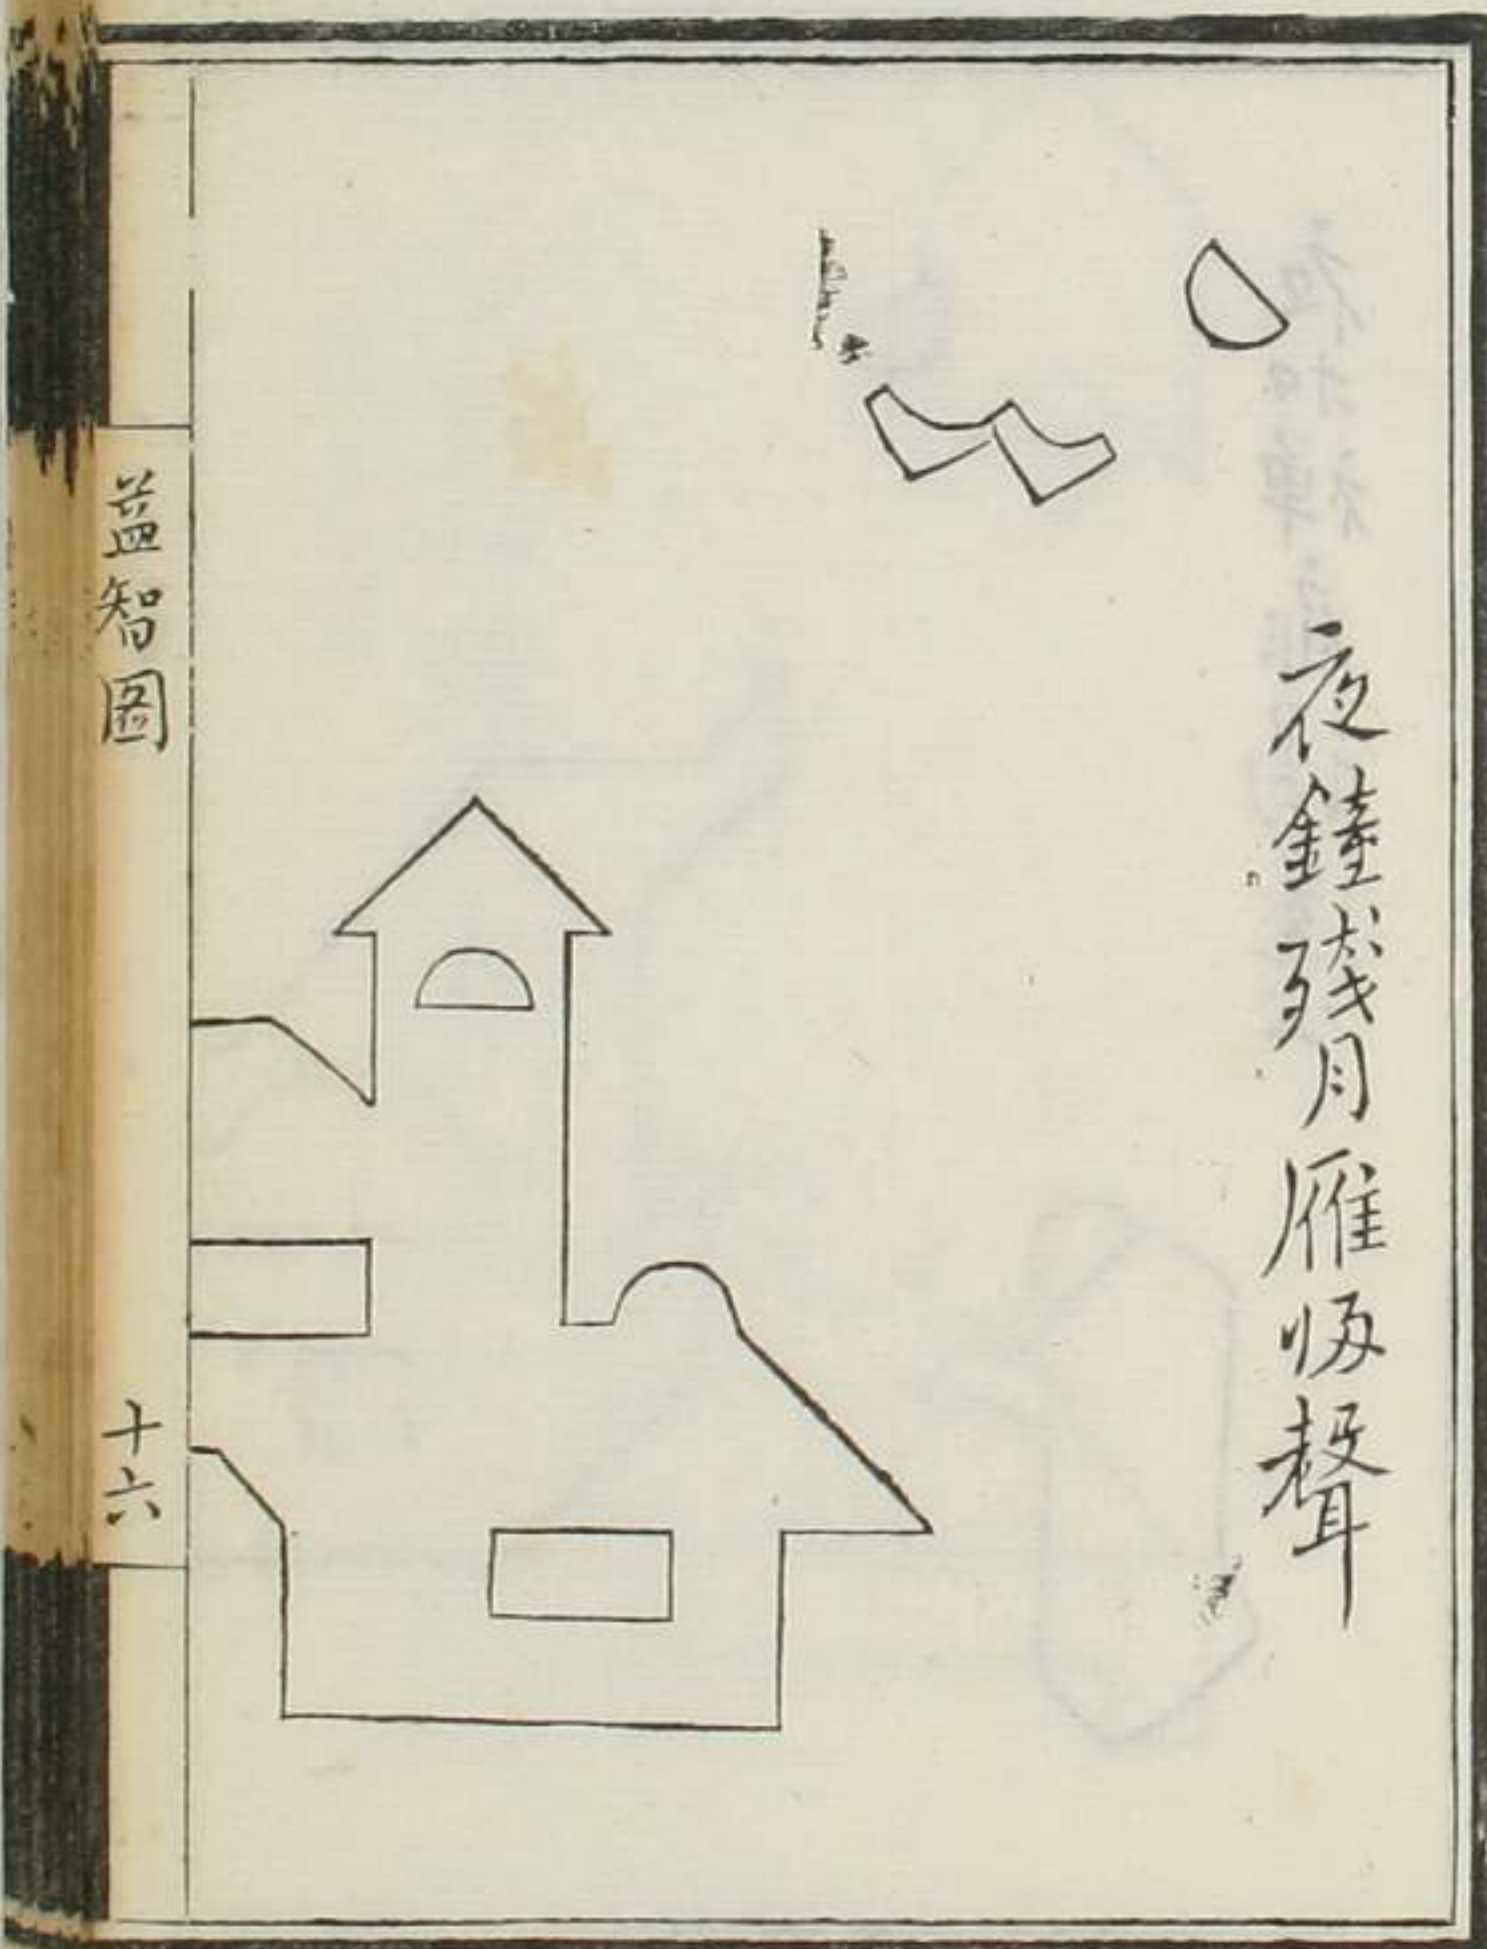 夜鐘殘月雁歸聲
益智圖
十六